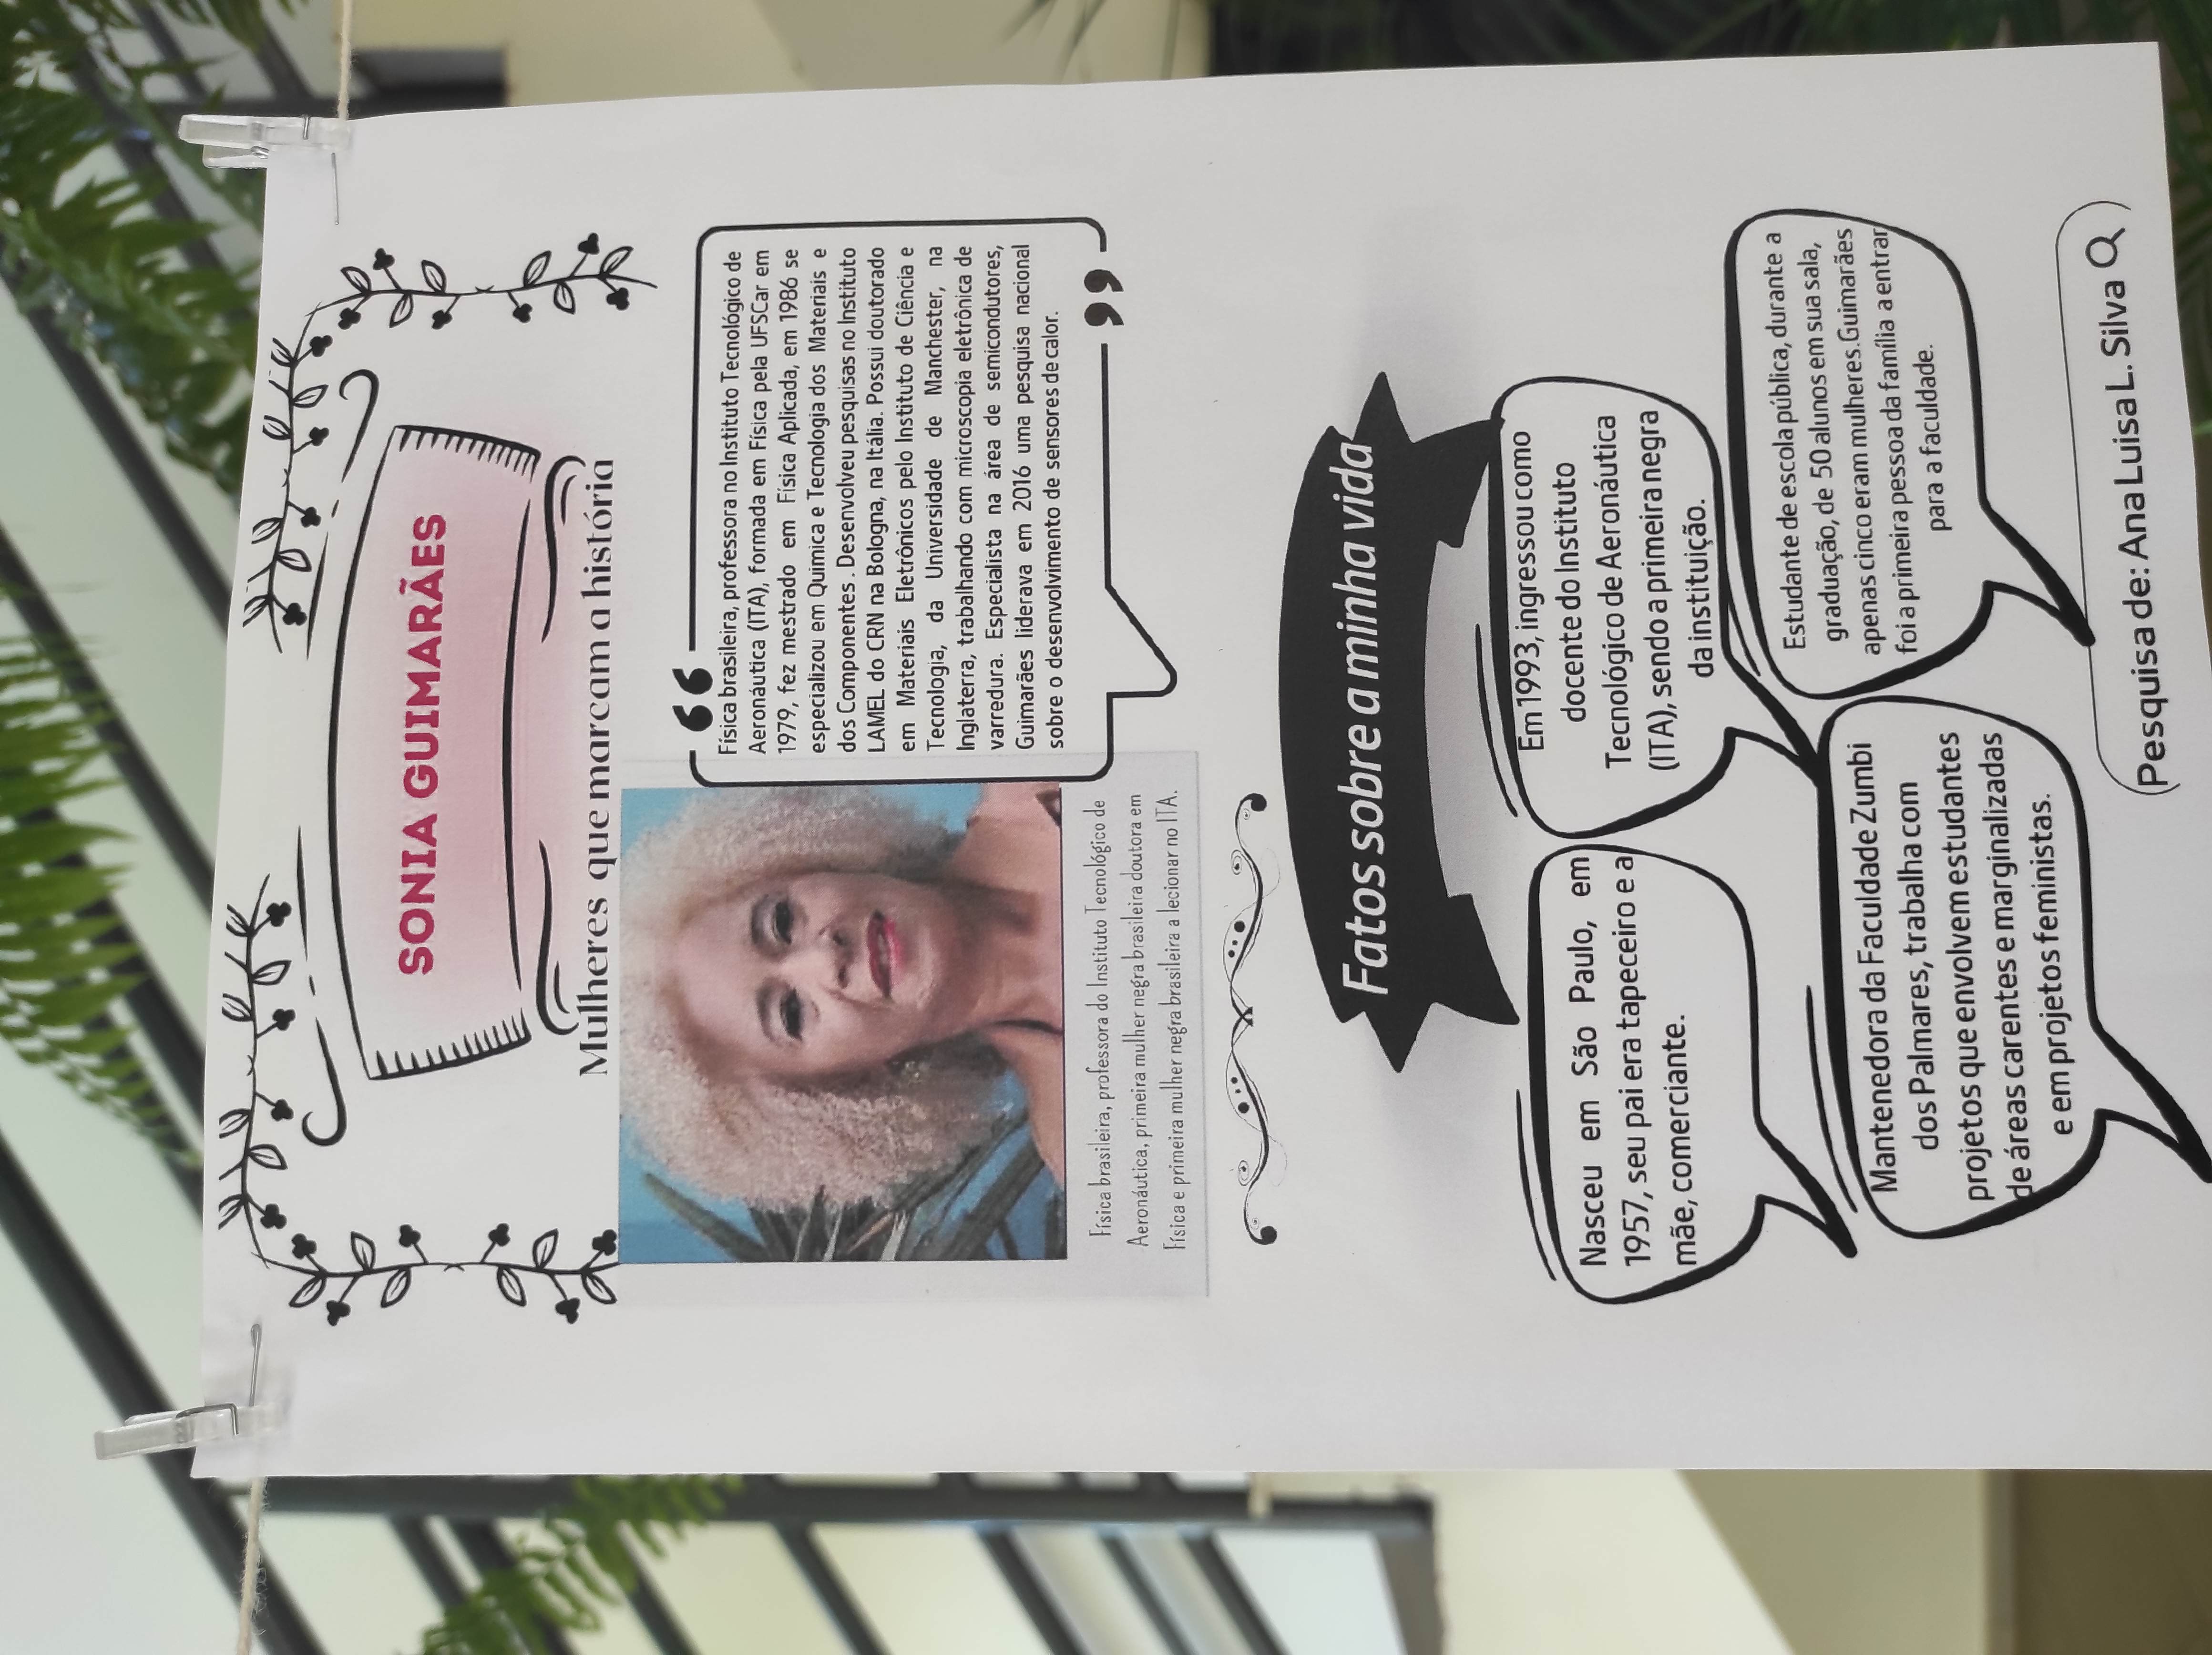 SONIA GUIMARÃES
Mulheres que marcam a história
Física brasileira, professora no Instituto Tecnológico de
Aeronáutica (ITA), formada em Física pela UFSCar em
1979, fez mestrado em Física Aplicada, em 1986 se
especializou em Química e Tecnologia dos Materiais e
dos Componentes. Desenvolveu pesquisas no Instituto
LAMEL do CRN na Bologna, na Itália. Possui doutorado
em Materiais Eletrônicos pelo Instituto de Ciência e
Tecnologia, da Universidade de Manchester, na
Inglaterra, trabalhando com microscopia eletrônica de
varredura. Especialista na área de semicondutores,
Guimarães liderava em 2016 uma pesquisa nacional
sobre o desenvolvimento de sensores de calor.
Física brasileira, professora do Instituto Tecnológico de
Aeronáutica, primeira mulher negra brasileira doutora em
Física e primeira mulher negra brasileira a lecionar no ITA.
Fatos sobre a minha vida
Nasceu em São Paulo, em
1957, seu pai era tapeceiro e a
mãe, comerciante.
Em 1993, ingressou como
docente do Instituto
Tecnológico de Aeronáutica
(ITA), sendo a primeira negra
da instituição.
Mantenedora da Faculdade Zumbi
dos Palmares, trabalha com
projetos que envolvem estudantes
de áreas carentes e marginalizadas
e em projetos feministas.
Estudante de escola pública, durante a
graduação, de 50 alunos em sua sala,
apenas cinco eram mulheres.Guimarães
foi a primeira pessoa da família a entrar
para a faculdade.
Pesquisa de: Ana Luisa L. Silva